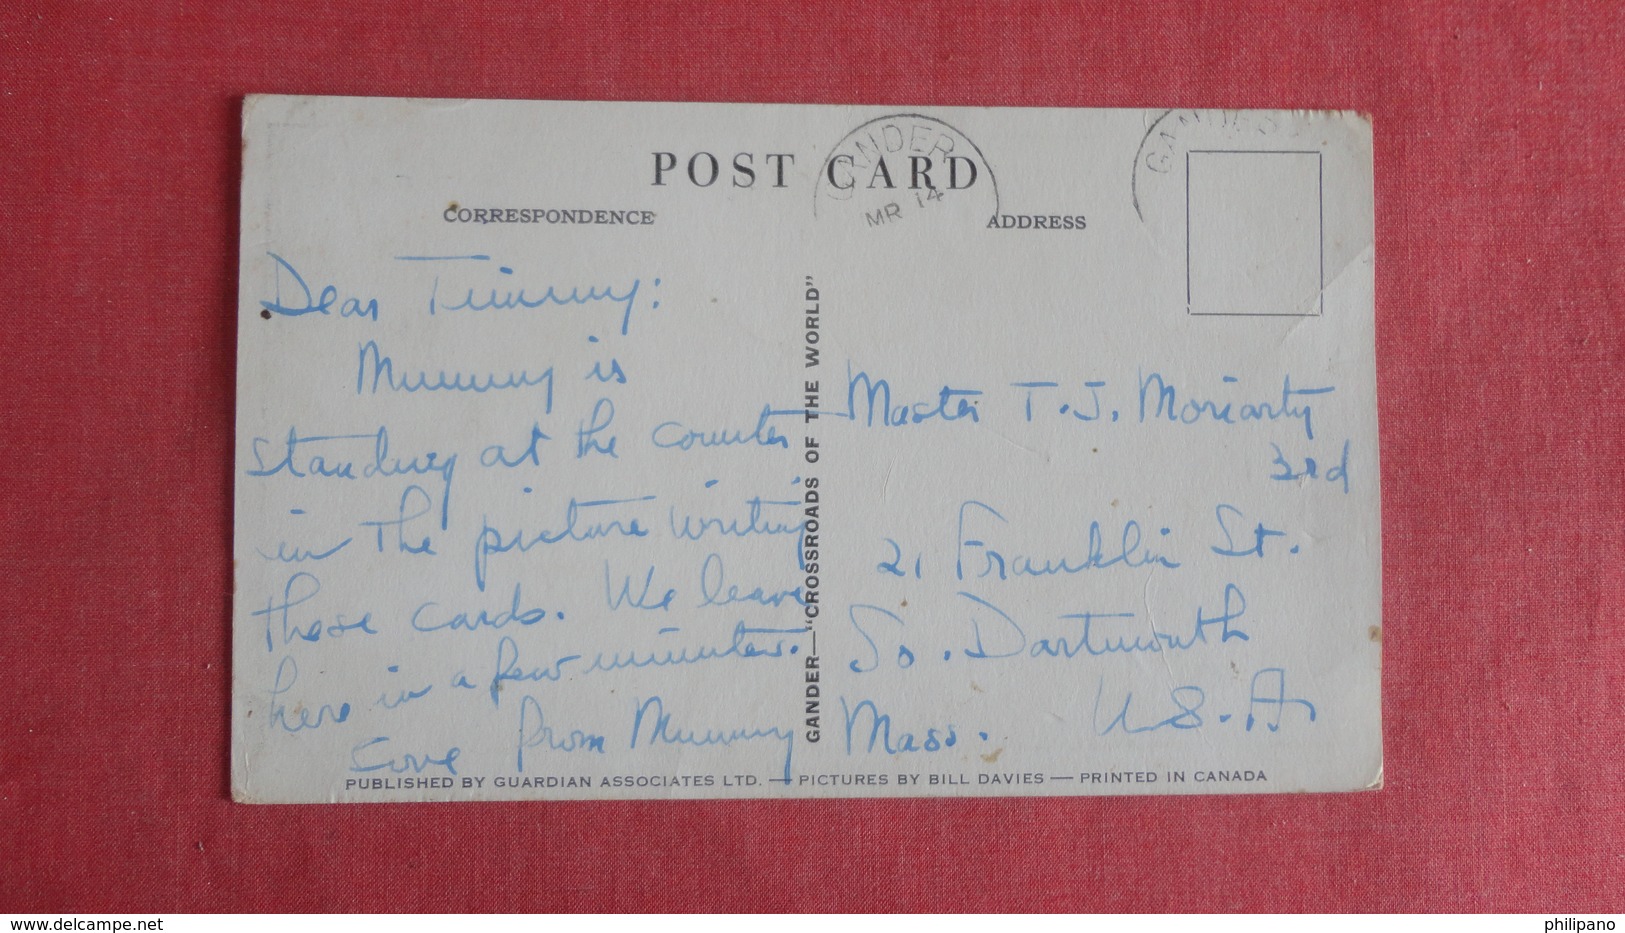 POST CARD
GANDER
MR 14
GANDER
CORRESPONDENCE
ADDRESS
Dear Timmy:
Mummy is
standing at the counter
in the picture writing
these cards. We leave
here in a few minutes.
Love from Mummy
GANDER—"CROSSROADS OF THE WORLD"
Master T. J. Moriarty
3rd
21 Franklin St.
So. Dartmouth
Mass. U.S.A.
PUBLISHED BY GUARDIAN ASSOCIATES LTD. — PICTURES BY BILL DAVIES — PRINTED IN CANADA
Posted by Ron on www.delcampe.net
philipano